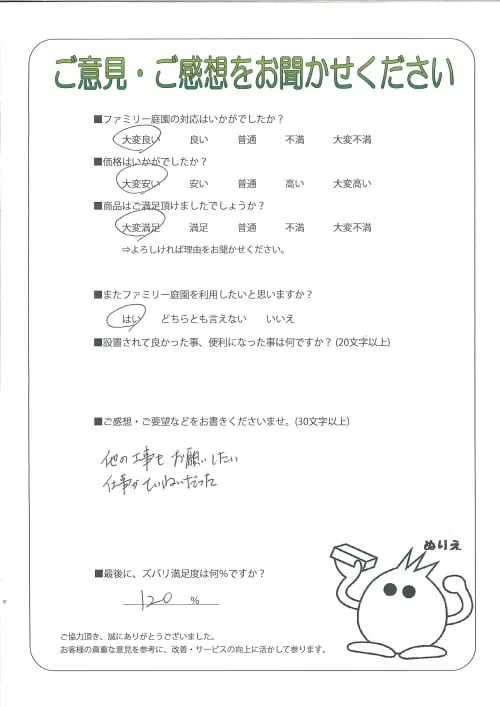 ご意見・ご感想をお聞かせください
■ファミリー庭園の対応はいかがでしたか？
大変良い 良い 普通 不満 大変不満
■価格はいかがでしたか？
大変安い 安い 普通 高い 大変高い
■商品はご満足頂けましたでしょうか？
大変満足 満足 普通 不満 大変不満
⇒よろしければ理由をお聞かせください。
■またファミリー庭園を利用したいと思いますか？
はい どちらとも言えない いいえ
■設置されて良かった事、便利になった事は何ですか？(20文字以上)
■ご感想・ご要望などをお書きくださいませ。(30文字以上)
他の工事もお願いしたい
仕事がていねいだった
ぬりえ
■最後に、ズバリ満足度は何％ですか？
120 %
ご協力頂き、誠にありがとうございました。
お客様の貴重な意見を参考に、改善・サービスの向上に活かして参ります。